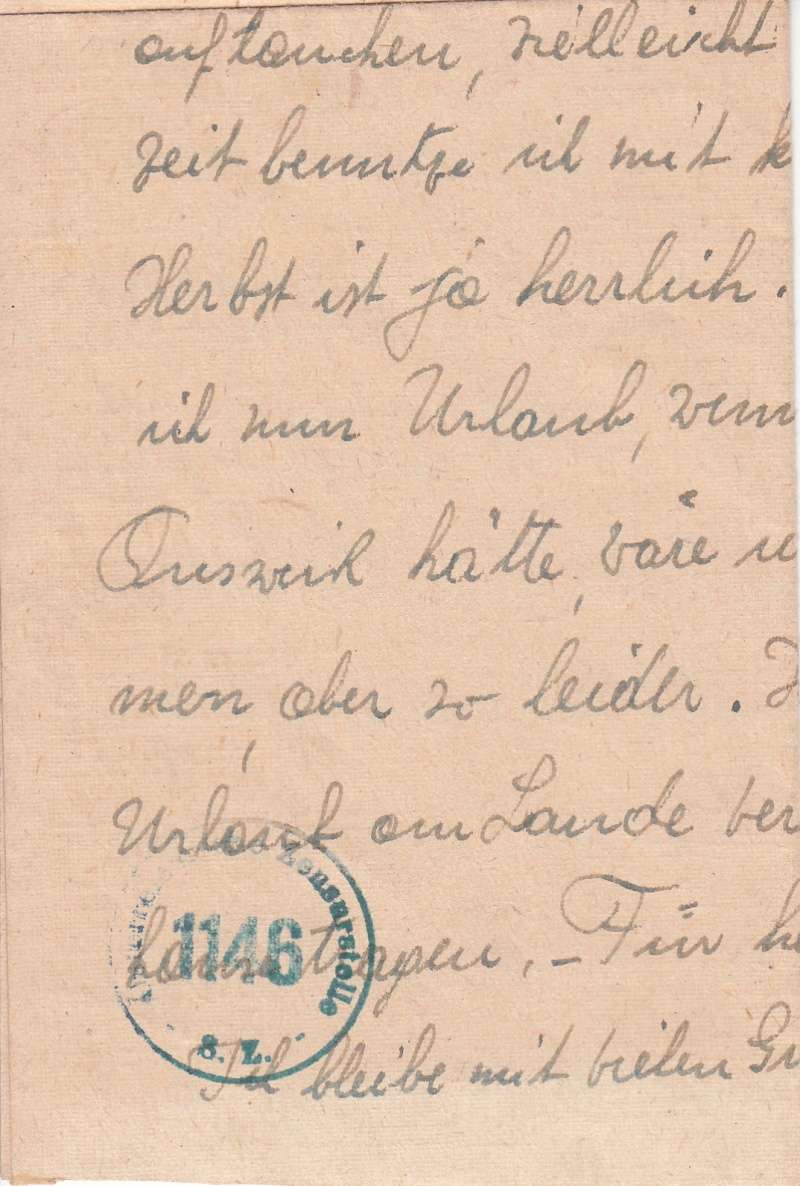 auftauchen, vielleicht
zeit benutze ich mit k
Herbst ist ja herrlich.
ich nun Urlaub, wenn
Ausweich hätte, wäre
men, aber so leider.
Urlaub am Lande ver
tragen. – Für he
Ich bleibe mit vielen Gr
Zensurstelle
1146
S. Z.